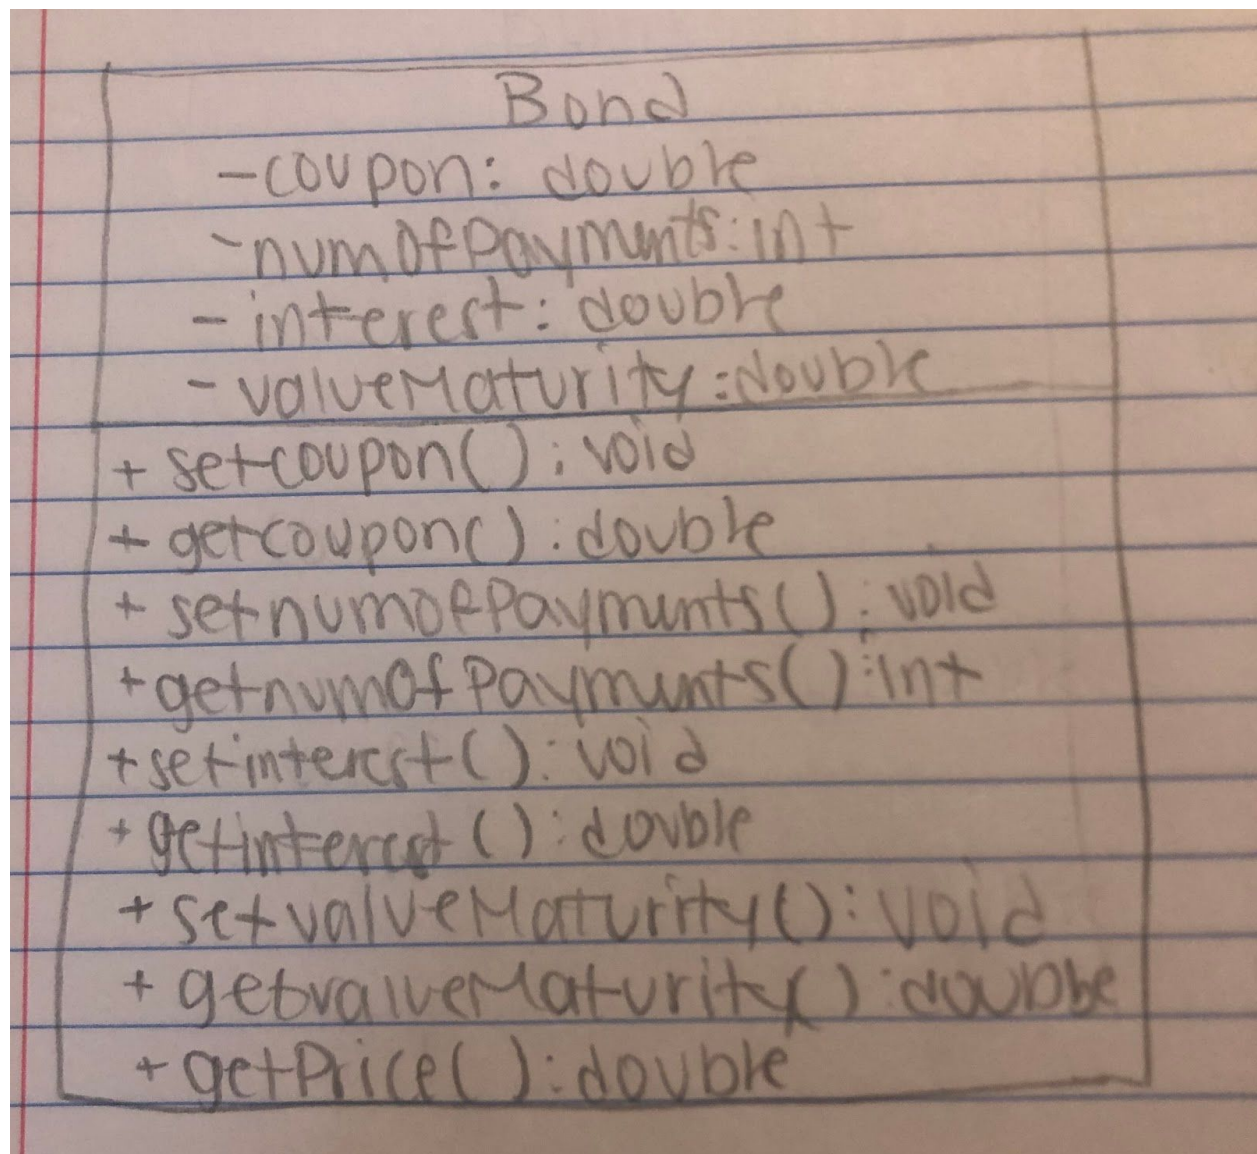 Bond
-coupon: double
-numOfPayments:int
-interest: double
-valueMaturity:double
+ setcoupon(): void
+ getcoupon(): double
+ setnumofPayments(): void
+getnumOfPayments():int
+setinterest(): void
+getinterest(): double
+setvalueMaturity(): void
+ getvalueMaturity():double
+getPrice():double